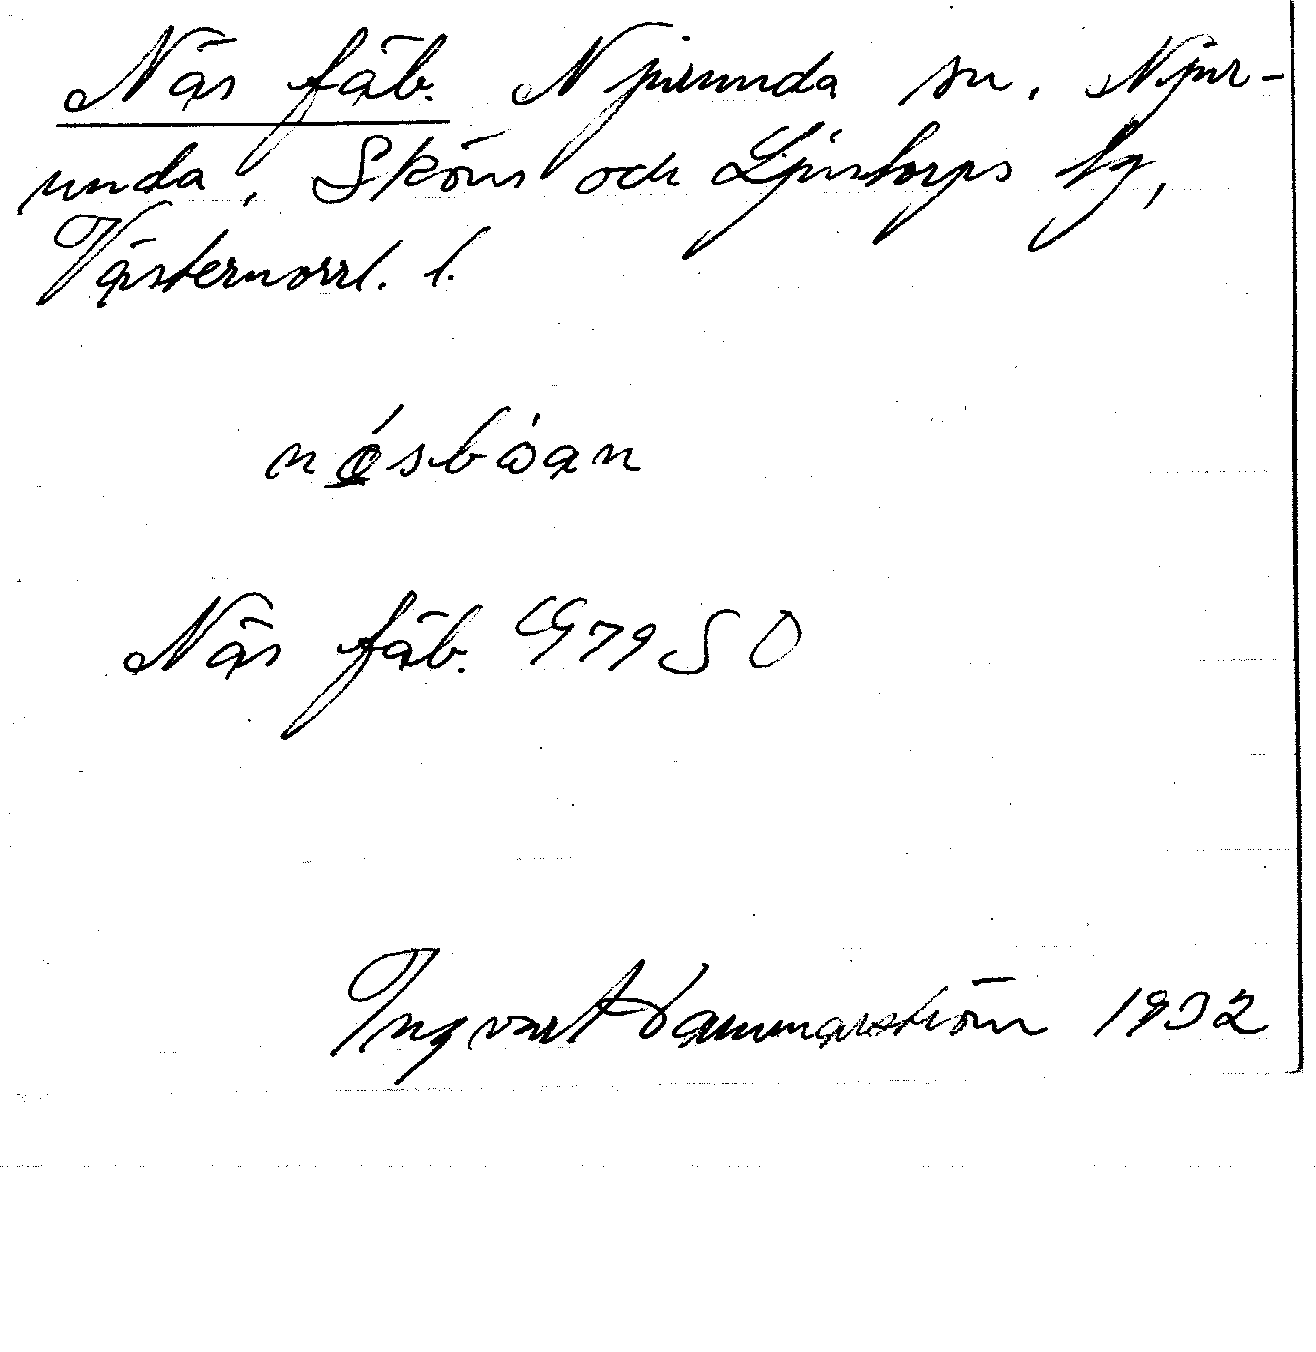 Näs fäb. Njurunda sn. Njur-
unda, Sköns och Ljustorps tg,
Västernorrl. l.
näsbóan
Näs fäb. G79 SO
Ingvart Hammarström 1932